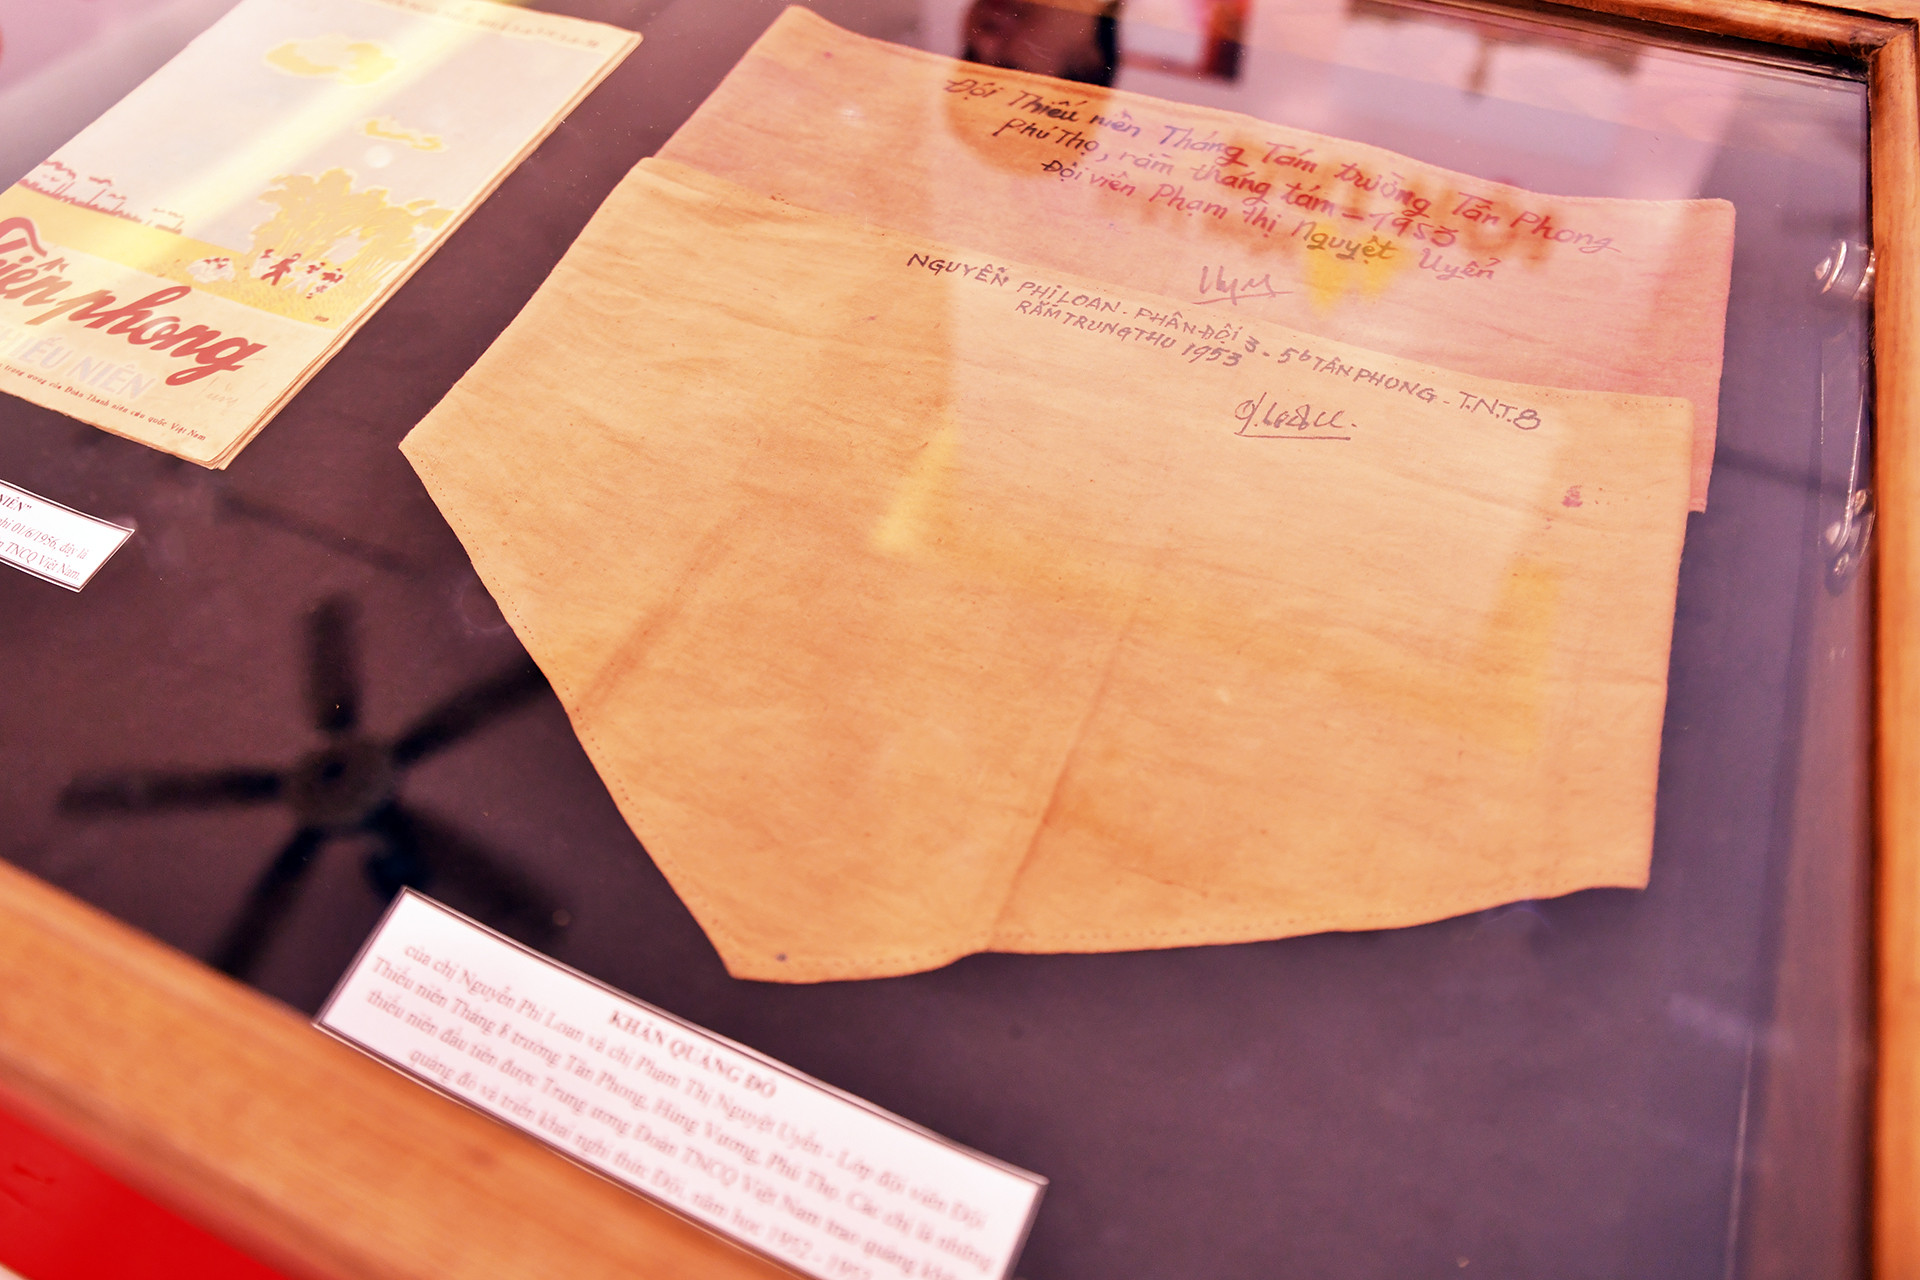 Tiền phong
THIẾU NIÊN
trung ương của Đoàn Thanh niên cứu quốc Việt Nam
NIÊN"
01/6/1956, đây là
TNCQ Việt Nam.
Đội Thiếu niên Tháng Tám trường Tân Phong
Phú Thọ, rằm tháng tám - 1953
Đội viên Phạm thị Nguyệt Uyển
NGUYỄN PHI LOAN - PHÂN ĐỘI 3 - 5b TÂN PHONG - T.N.T.8
RẰM TRUNG THU 1953
KHĂN QUÀNG ĐỎ
của chị Nguyễn Phi Loan và chị Phạm Thị Nguyệt Uyển - Lớp đội viên Đội
Thiếu niên Tháng 8 trường Tân Phong, Hùng Vương, Phú Thọ. Các chị là những
thiếu niên đầu tiên được Trung ương Đoàn TNCQ Việt Nam trao quàng khăn
quàng đỏ và triển khai nghi thức Đội, năm học 1952 - 1953